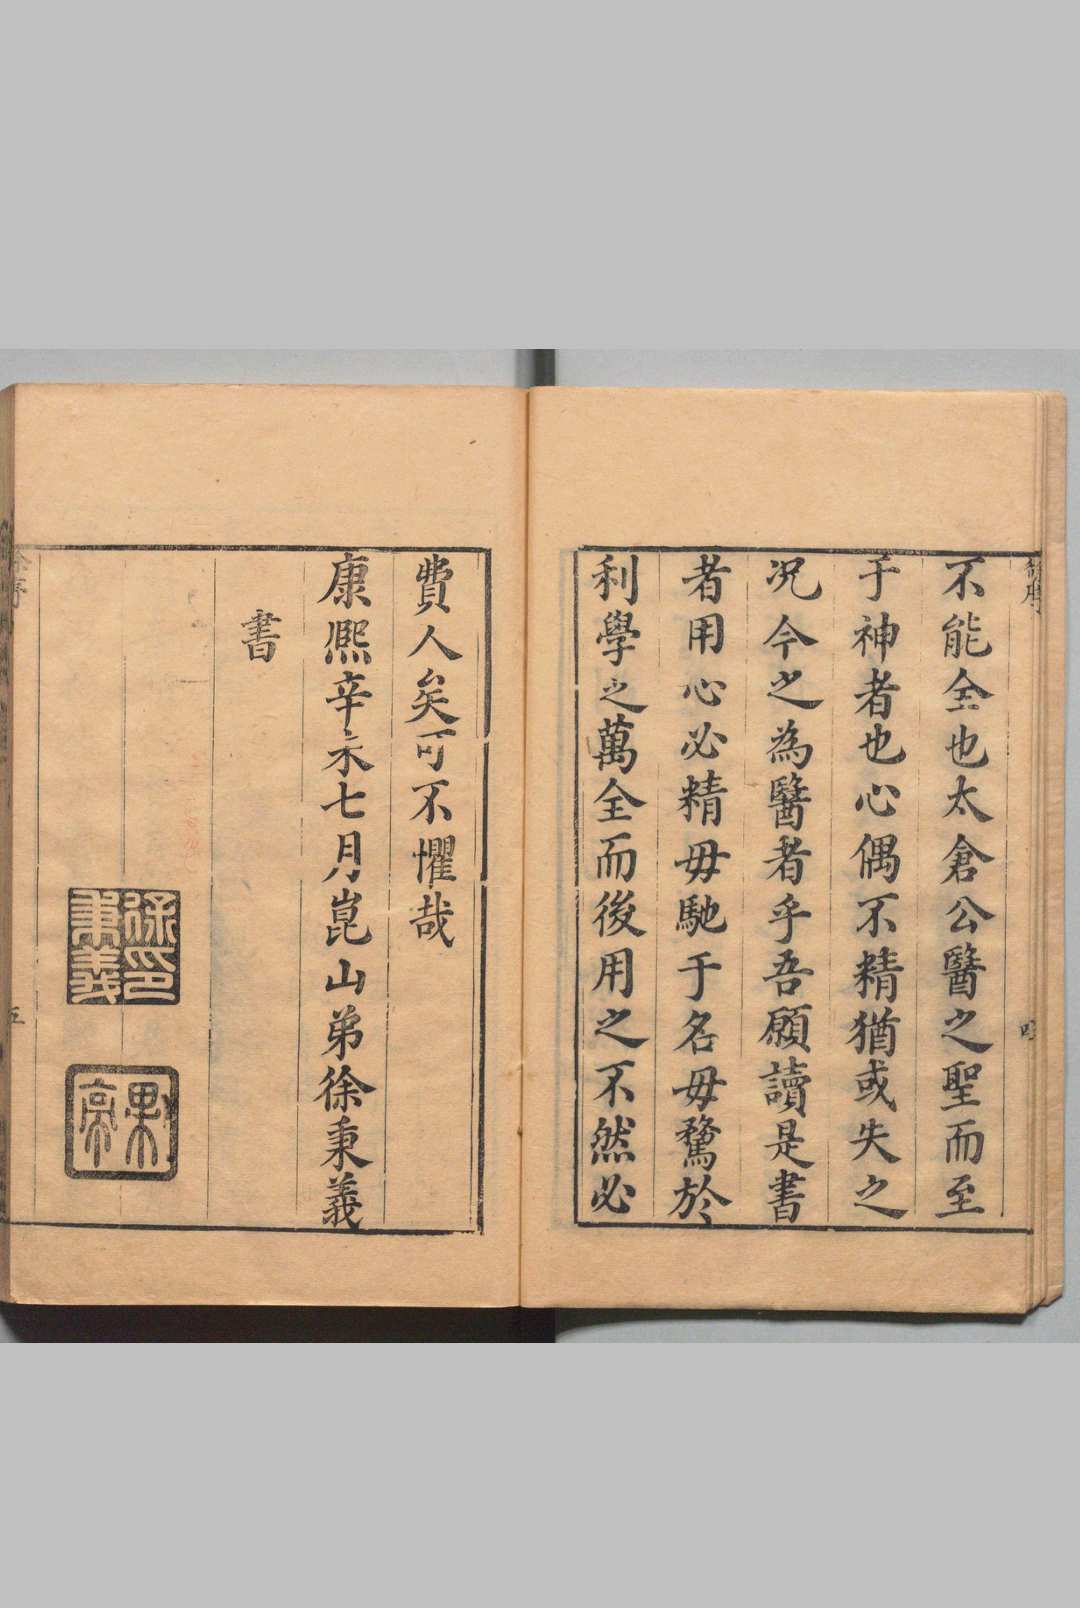 不能全也太倉公醫之聖而至
于神者也心偶不精猶或失之
况今之為醫者乎吾願讀是書
者用心必精毋馳于名毋騖於
利學之萬全而後用之不然必
費人矣可不懼哉
康熙辛未七月崑山弟徐秉義
書
徐秉義印
果亭
徐序
五